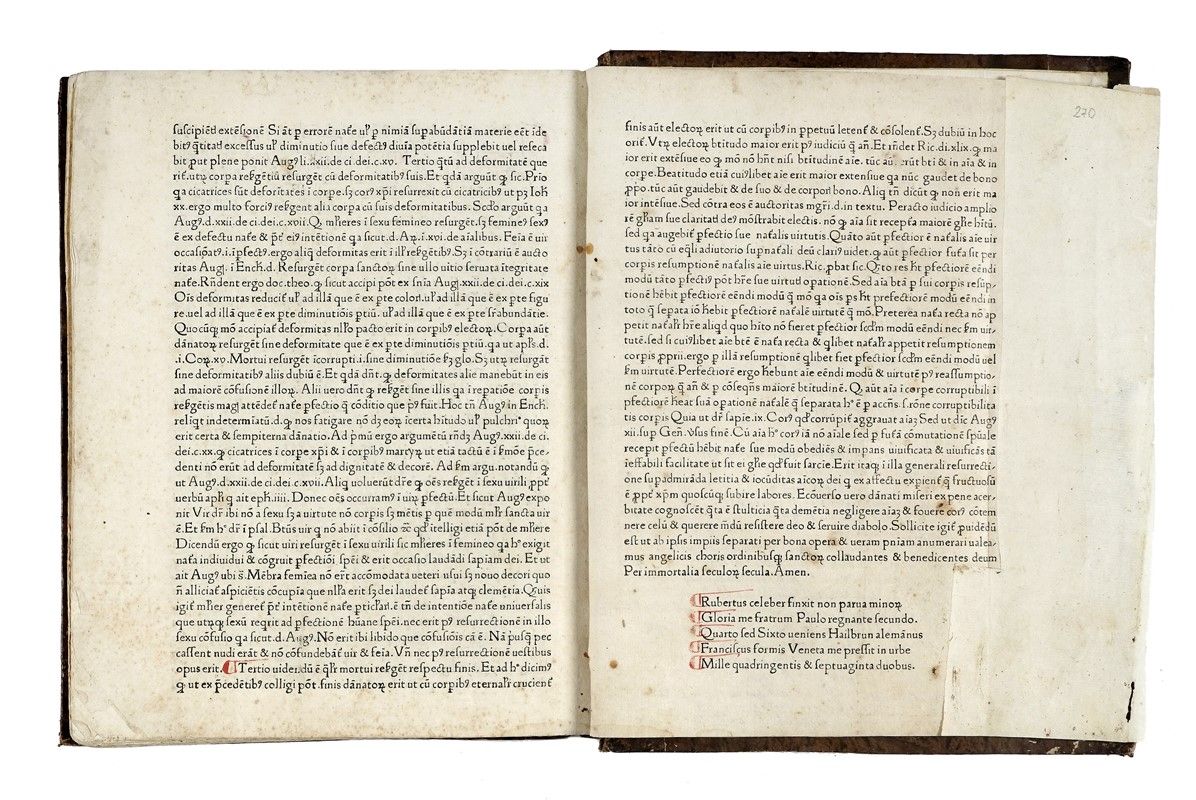 suscipiēdi extēsionē Si āt ꝑ errorē nat̄e ul̛ ꝑ nimiā suꝑabūdātiā materie eēt īde
bitꝰ q̄titati excessus ul̛ diminutio siue defectꝰ diuīa potētia supplebit uel reseca
bit ꝓut plene ponit Augꝰ li. xxii. de ci. dei. c. xv. Tertio q̄tū ad deformitatē que
rit̄. utꝝ corpa resurgētiū resurgēt cū deformitatibꝰ suis. Et qdā arguūt ꝙ sic. Prīo
qa cicatrices sūt deformitates ī corpe. sꝫ corꝰ xp̄i resurrexit cū cicatricibꝰ ut pꝫ Ioh
xx. ergo multo forciꝰ resurgent alia corpa cū suis deformitatibus. Scdō arguūt qa
Augꝰ. d. xxii. de ci. dei. c. xvii. Q. mlieres ī sexu femineo resurgēt. sꝫ feminꝰ sexꝰ
ē ex defectu nat̄e & p̄t̄ eiꝰ intētionē qa sicut. d. Aꝝ. ī. xvi. de aialibus. Feīa ē uir
occasionatꝰ. i. īpfectꝰ. ergo aliq̄ deformitas erit ī illis resurgētibꝰ. Sꝫ ī cōtrariū ē aucto
ritas Augꝰ. ī Ench. d. Resurgēt corpa sanctoꝝ sine ullo uitio seruata ītegritate
nat̄e. Rn̄dent ergo doc. theo. ꝙ sicut accipi pōt ex snīa Augꝰ. xxii. de ci. dei. c. xix
Oīs deformitas reducit̄ ul̛ ad illā que ē ex pte coloris. ul̛ ad illā que ē ex pte figu
re. uel ad illā que ē ex pte diminutiōis ptiū. ul̛ ad illā que ē ex pte suꝑabundātie.
Quocūqꝫ mō accipiat̄ deformitas nullo pacto erit in corpibꝰ electoꝝ. Corpa aūt
dānatoꝝ resurgēt sine deformitate que ē ex pte diminutiōis ptiū. qa ut apl̄s. d.
.i. Coꝝ. xv. Mortui resurgēt īcorrupti. i. sine diminutiōe sꝫ glo. Sꝫ utꝝ resurgāt
sine deformitatibꝰ aliis dubiū ē. Et qdā dn̄t. ꝙ deformitates alie manebūt in eis
ad maiorē cōfusionē illoꝝ. Alii uero dn̄t ꝙ resurgēt sine illis qa ī repatiōe corpis
resurgētis magꝭ attēdet̄ nat̄e pfectio q̄ cōditio que pꝰ fuit. Hoc tn̄ Augꝰ in Ench.
reliqt indetermiatū. d. ꝙ nos fatigare nō dꝫ eoꝝ icerta hitudo ul̛ pulchritudo quoꝝ
erit certa & sempiterna dānatio. Ad p̄mū ergo argumētū rn̄dꝫ Augꝰ. xxii. de ci.
dei. c. xx. ꝙ cicatrices ī corpe xp̄i & ī corpibꝰ martyꝝ ut etiā tactū ē ī mōe p̄ce-
denti nō erūt ad deformitatē sꝫ ad dignitatē & decorē. Ad sm argu. notandū ꝙ
ut Augꝰ. d. xxii. de ci. dei. c. xvii. Aliq uoluerūt dr̄e ꝙ oēs resurgēt ī sexu uirili ꝓpt̄
uerbū apl̄i q ait eph. iiii. Donec oēs occurramꝰ ī uiꝝ pfectū. Et sicut Augꝰ expo
nit Vir dr̄ ibi nō a sexu sꝫ a uirtute nō corpis sꝫ mētis ꝑ quē modū ml̄r sancta uir
ē. Et sm hꝰ dr̄ ī psal. Btūs uir q nō abiit ī cōsilio ⁊c̄ qd̛ itelligi etiā pōt de mliere
Dicendū ergo ꝙ sicut uiri resurgēt ī sexu uirili sic mlieres ī femineo qa hꝰ exigit
nat̄a indiuidui & cōgruit pfectiōi spēi & erit occasio laudādi sapiam dei. Et ut
ait Augꝰ ubi s̄. Mēbra femīea nō erūt accōmodata ueteri usui sꝫ nouo decori quo
n̄ alliciat̄ aspiciētis cōcupīa que nulla erit sꝫ dei laudet̄ sapīa atqꝫ clemētia. Qꝫuis
igit̄ ml̄ier generet̄ p̄t̄ intētionē nat̄e pticl̄aris. ē tn̄ de intentiōe nat̄e uniuersalis
que utꝝqꝫ sexū reqrit ad pfectionē hūane spēi. nec erit pꝰ resurrectionē in illo
sexu cōfusio qa sicut. d. Augꝰ. Nō erit ibi libido que cōfusiōis cā ē. Nā p̄usq̄ pec
cassent nudi erāt & nō cōfundebāt̄ uir & feīa. Vn̄ nec pꝰ resurrectionē uestibus
opus erit. ¶ Tertio uidendū ē qlit̄ mortui resurgēt respectu finis. Et ad hꝰ dicimꝰ
ꝙ ut ex p̄cedētibꝰ colligi pōt. finis dānatoꝝ erit ut cū corpibꝰ eternalit̄ crucient̄
270
finis aūt electoꝝ erit ut cū corpibꝰ in ppetuū letent̄ & cōsolent̄. Sꝫ dubiū in hoc
orit̄. Vtꝝ electoꝝ btitudo maior erit pꝰ iudiciū q̄ an̄. Et rn̄det Ric. di. xlix. ꝙ ma
ior erit extēsiue eo ꝙ mō nō hn̄t nisi btitudinē aīe. tūc aūt erūt bti & in aīa & in
corpe. Beatitudo etiā cuiꝰlibet aīe erit maior extensiue qa nūc gaudet de bono
ꝓpo. tūc aūt gaudebit & de suo & de corporis bono. Aliq tn̄ dicūt ꝙ non erit ma
ior intēsiue. Sed cōtra eos ē auctoritas mgr̄i. d. in textu. Peracto iudicio amplio
rē gl̄iam sue claritatis deꝰ mōstrabit electis. nō ꝙ aīa sit recepta maiorē gl̄ie hitū.
sed qa augebit̄ pfectio sue naturalis uirtutis. Quāto aūt pfectior ē naturalis aīe uir
tus tāto cū eq̄li adiutorio supnat̄ali deū clariꝰ uidet. ꝙ aūt pfectior futura sit per
corpis resumptionē naturalis aīe uirtus. Ric. ꝓbat sic. Qꝫto res hꝫ pfectiorē eēndi
modū tāto pfectiꝰ pōt hr̄e sue uirtutis opationē. Sed aīa btā ꝑ sui corpis resūp-
tionē hēbit pfectiorē eēndi modū q̄ mō qa oīs ps hꝫ prefectiorē modū eēndi in
toto q̄ sepata iō hēbit pfectiorē nat̄alē uirtutē q̄ mō. Preterea nat̄a recta nō ap
petit nat̄alit̄ hr̄e aliqd quo hito nō fieret pfectior scdm modū eēndi nec sm uir-
tutē. sed si cuiꝰlibet aīe btē ē nat̄a recta & qlibet nat̄alit̄ appetit resumptionem
corpis ꝓprii. ergo ꝑ illā resumptionē qlibet fiet pfectior scdm modū eēndi uel
sm uirtutē. Perfectiorē ergo hēbunt aīe eēndi modū & uirtutē pꝰ reassumptio-
nē corpoꝝ q̄ an̄ & ꝑ cōseqn̄s maiorē btitudinē. Q. aūt aīa ī corpe corruptibili ī
pfectiorē hēat suā opationē nat̄alē q̄ separata hꝰ ē ꝑ accn̄s. s. rōne corruptibilita
tis corpis Quia ut dr̄ sapīe. ix. Corꝰ qd̛ corrūpit̄ aggrauat aīaꝫ Sed ut dic̄ Augꝰ
xii. sup Gen̄. ꝟsus finē. Cū aīa hꝰ corꝰ iā nō aīale sed ꝑ futurā cōmutationē spūale
recepit pfectū hēbit nat̄e sue modū obediēs & impans uiuificata & uiuificās tā
ineffabili facilitate ut sit ei gl̄ie qd̛ fuit sarcīe. Erit itaqꝫ ī illa generali resurrecti-
one supadmirāda letitia & iocūditas aīcoꝝ dei q ex affectu expient̄ ꝙ fructuosū
ē ꝓpt̄ xp̄m quoscūqꝫ subire labores. Ecōuerso uero dānati miseri ex pene acer-
bitate cognoscēt q̄ta ē stulticia q̄ta demētia negligere aīaꝫ & fouere corꝰ cōtem
nere celū & querere mūdū resistere deo & seruire diabolo. Sollicite igit̄ ꝓuidēdū
est ut ab ipsis impiis separati per bona opera & ueram pniam anumerari ualea-
mus angelicis choris ordinibusqꝫ sanctoꝝ collaudantes & benedicentes deum
Per immortalia seculoꝝ secula. Amen.
¶ Rubertus celeber finxit non parua minoꝝ
¶ Gloria me fratrum Paulo regnante secundo.
¶ Quarto sed Sixto ueniens Hailbrun alemānus
¶ Franciscus formis Veneta me pressit in urbe
¶ Mille quadringentis & septuaginta duobus.